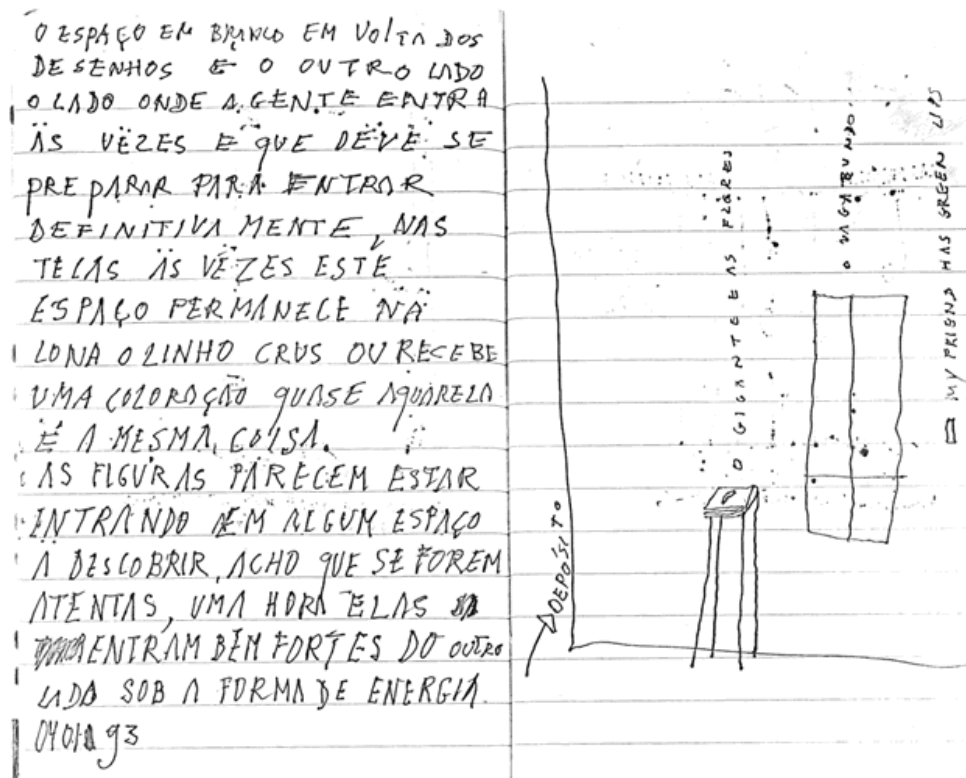 O ESPAÇO EM BRANCO EM VOLTA DOS
DESENHOS E O OUTRO LADO
O LADO ONDE A GENTE ENTRA
ÀS VEZES E QUE DEVE SE
PREPARAR PARA ENTRAR
DEFINITIVA MENTE, NAS
TELAS ÀS VEZES ESTE
ESPAÇO PERMANECE NA
LONA O LINHO CRUS OU RECEBE
UMA COLORAÇÃO QUASE AQUARELA
É A MESMA COISA.
AS FIGURAS PARECEM ESTAR
ENTRANDO EM ALGUM ESPAÇO
A DESCOBRIR, ACHO QUE SE FOREM
ATENTAS, UMA HORA ELAS
ENTRAM BEM FORTES DO OUTRO
LADO SOB A FORMA DE ENERGIA.
93
DEPÓSITO
O GIGANTE E AS FLORES
O VAGABUNDO
MY FRIEND HAS GREEN LIPS